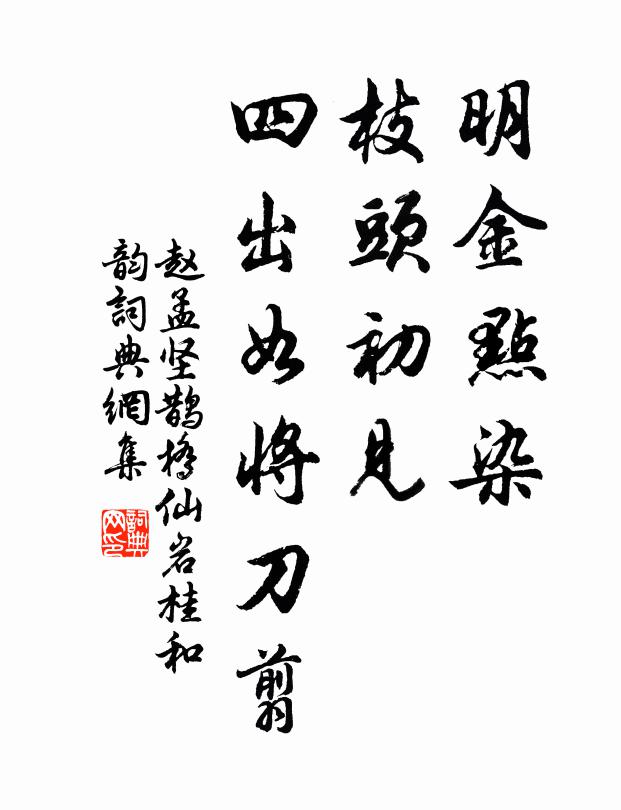 明金點染
枝頭初見
四出如將刀剪
赵孟坚鹊桥仙岩桂和
韵詞典網集
詞典網印